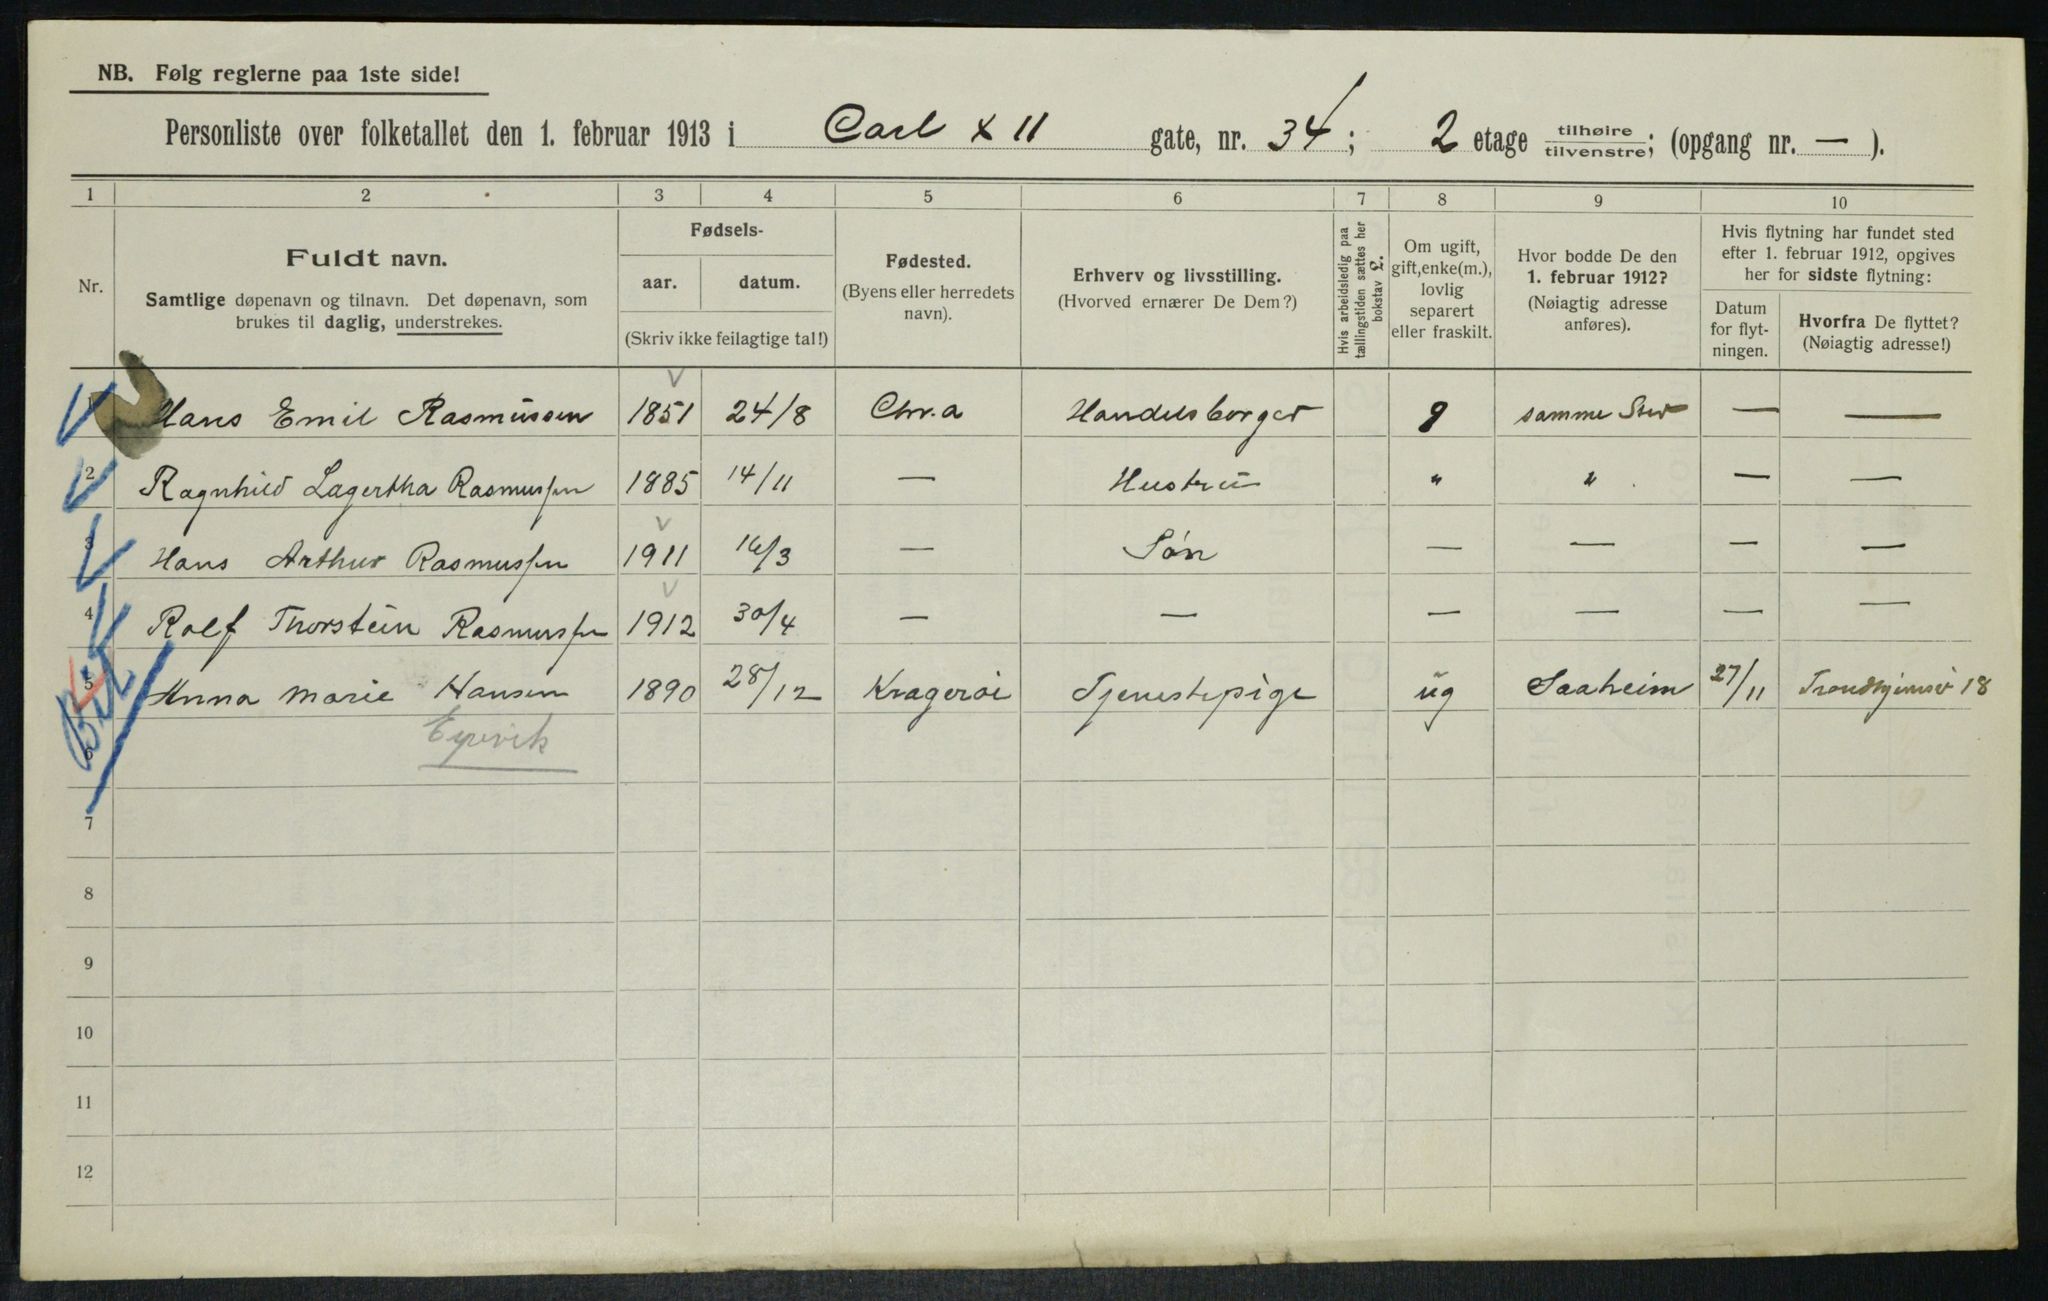 NB. Følg reglerne paa 1ste side!
Personliste over folketallet den 1. februar 1913 i Carl X II gate, nr. 34; 2 etage tilhøire/tilvenstre; (opgang nr. — ).
1 2 3 4 5 6 7 8 9 10
Nr.
Fuldt navn.
Samtlige døpenavn og tilnavn. Det døpenavn, som
brukes til daglig, understrekes.
Fødsels-
aar. datum.
(Skriv ikke feilagtige tal!)
Fødested.
(Byens eller herredets
navn).
Erhverv og livsstilling.
(Hvorved ernærer De Dem?)
Hvis arbeidsledig paa
tællingstiden sættes her
bokstav L.
Om ugift,
gift, enke(m.),
lovlig
separert
eller fraskilt.
Hvor bodde De den
1. februar 1912?
(Nøiagtig adresse
anføres).
Hvis flytning har fundet sted
efter 1. februar 1912, opgives
her for sidste flytning:
Datum
for flyt-
ningen.
Hvorfra De flyttet?
(Nøiagtig adresse!)
1 Hans Emil Rasmussen 1851 24/8 Chr.a Handelsborger g samme Sted — —
2 Ragnhild Lagertha Rasmussen 1885 14/11 — Hustru " " — —
3 Hans Arthur Rasmussen 1911 16/3 — Søn — — — —
4 Rolf Thorstein Rasmussen 1912 30/4 — — — — — —
5 Anna Marie Hansen 1890 28/12 Kragerøi Tjenestepige ug Saaheim 27/11 Trondhjemsv 18
6 Eyrvik
7
8
9
10
11
12